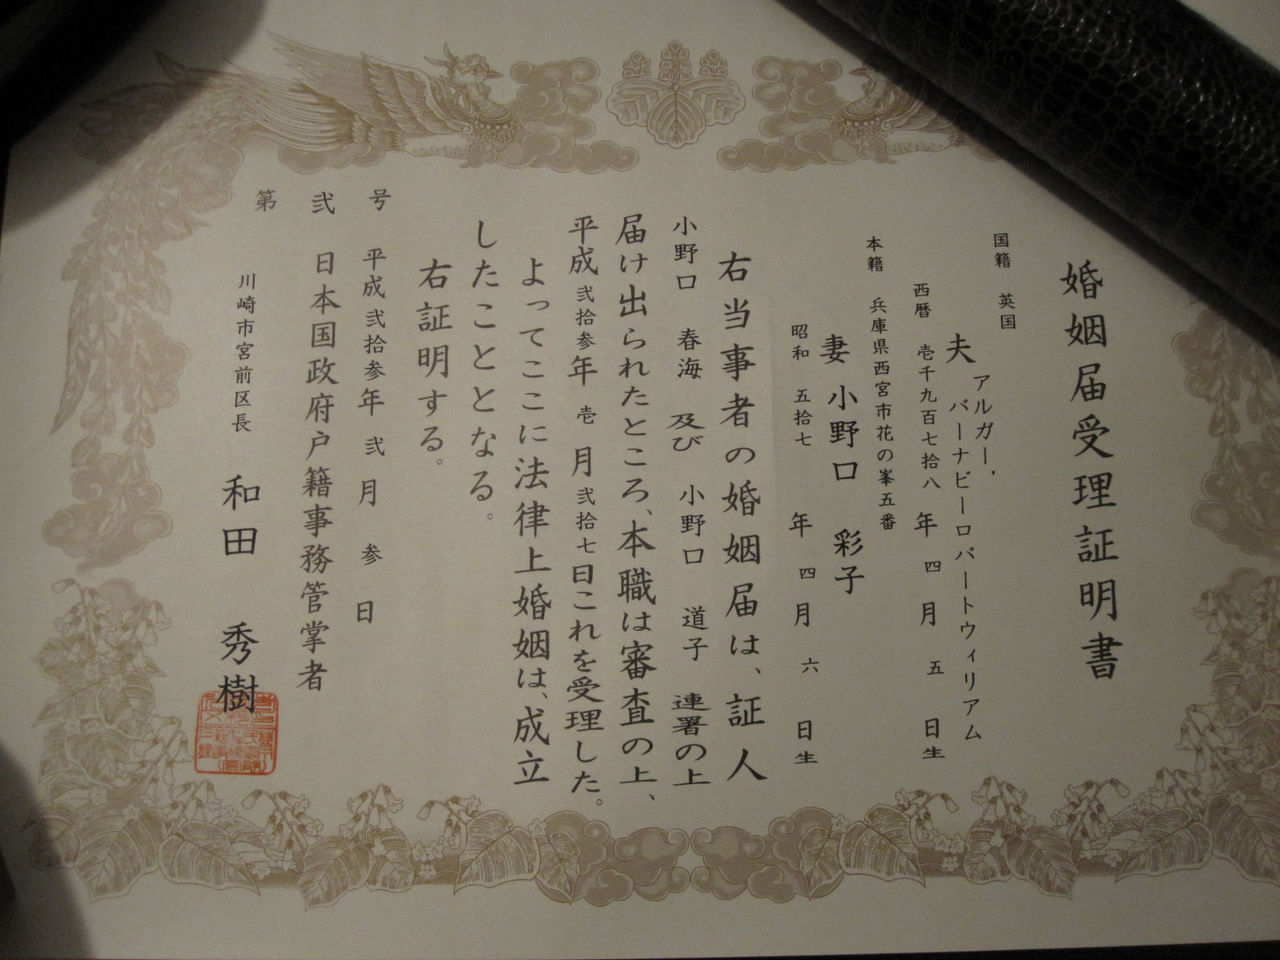 婚姻届受理証明書
国籍 英国
夫 アルガー，
バーナビーロバートウィリアム
西暦 壱千九百七拾八年 四月 五日生
本籍 兵庫県西宮市花の峯五番
妻 小野口 彩子
昭和 五拾七年 四月 六日生
右当事者の婚姻届は、証人
小野口 春海 及び 小野口 道子 連署の上
届け出られたところ、本職は審査の上、
平成 弐拾参年 壱月弐拾七日これを受理した。
よってここに法律上婚姻は、成立
したこととなる。
右証明する。
号 平成 弐拾参年 弐月 参日
弐 日本国政府戸籍事務管掌者
第 川崎市宮前区長 和田 秀樹